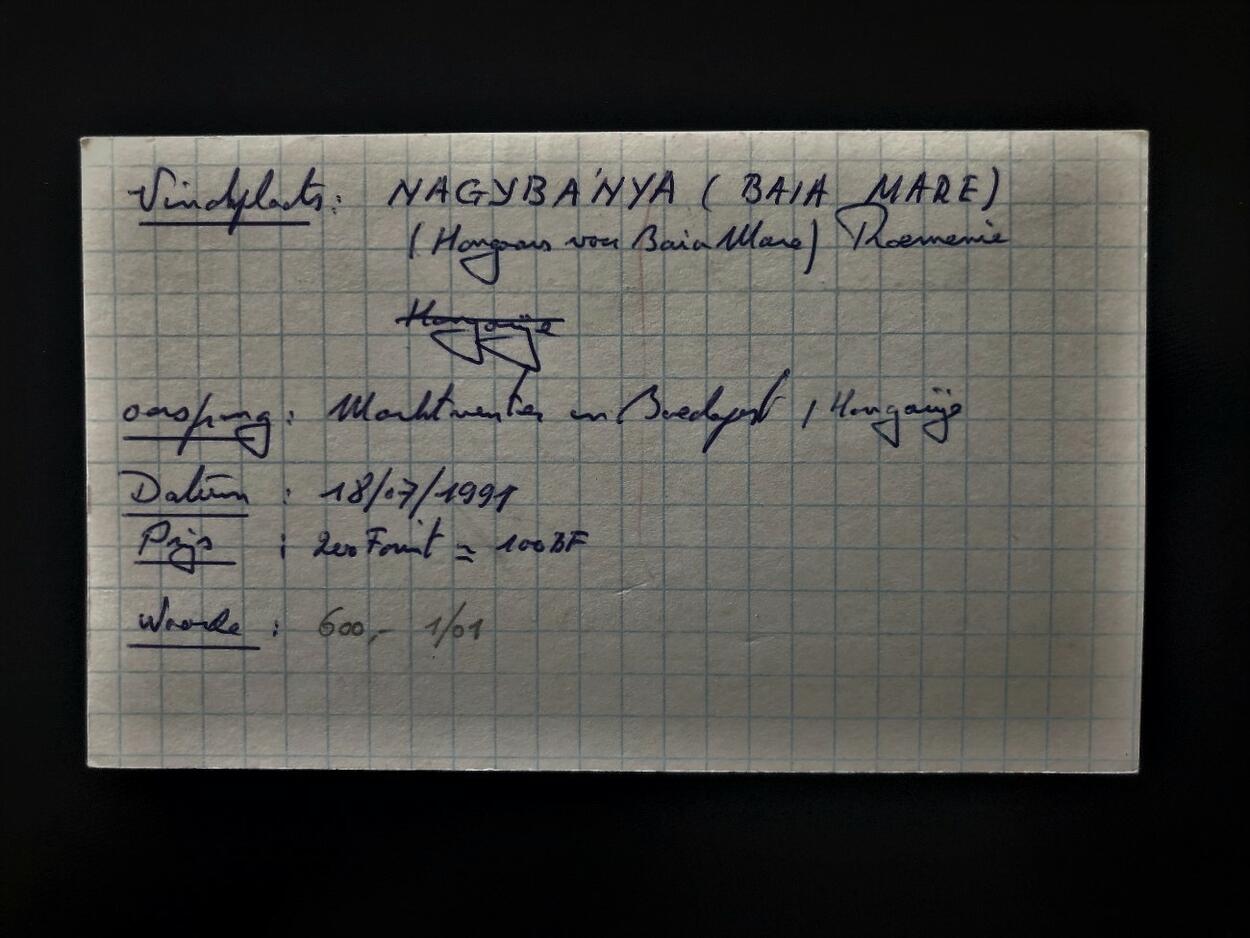 Vindplaats: NAGYBÁNYA (BAIA MARE)
(Hongaars voor Baia Mare) Roemenie
Hongarije
oorsprong: in Boedapest, Hongarije
Datum : 18/07/1991
Prijs : 200 Forint ≃ 100BF
Waarde : 600,- 1/01